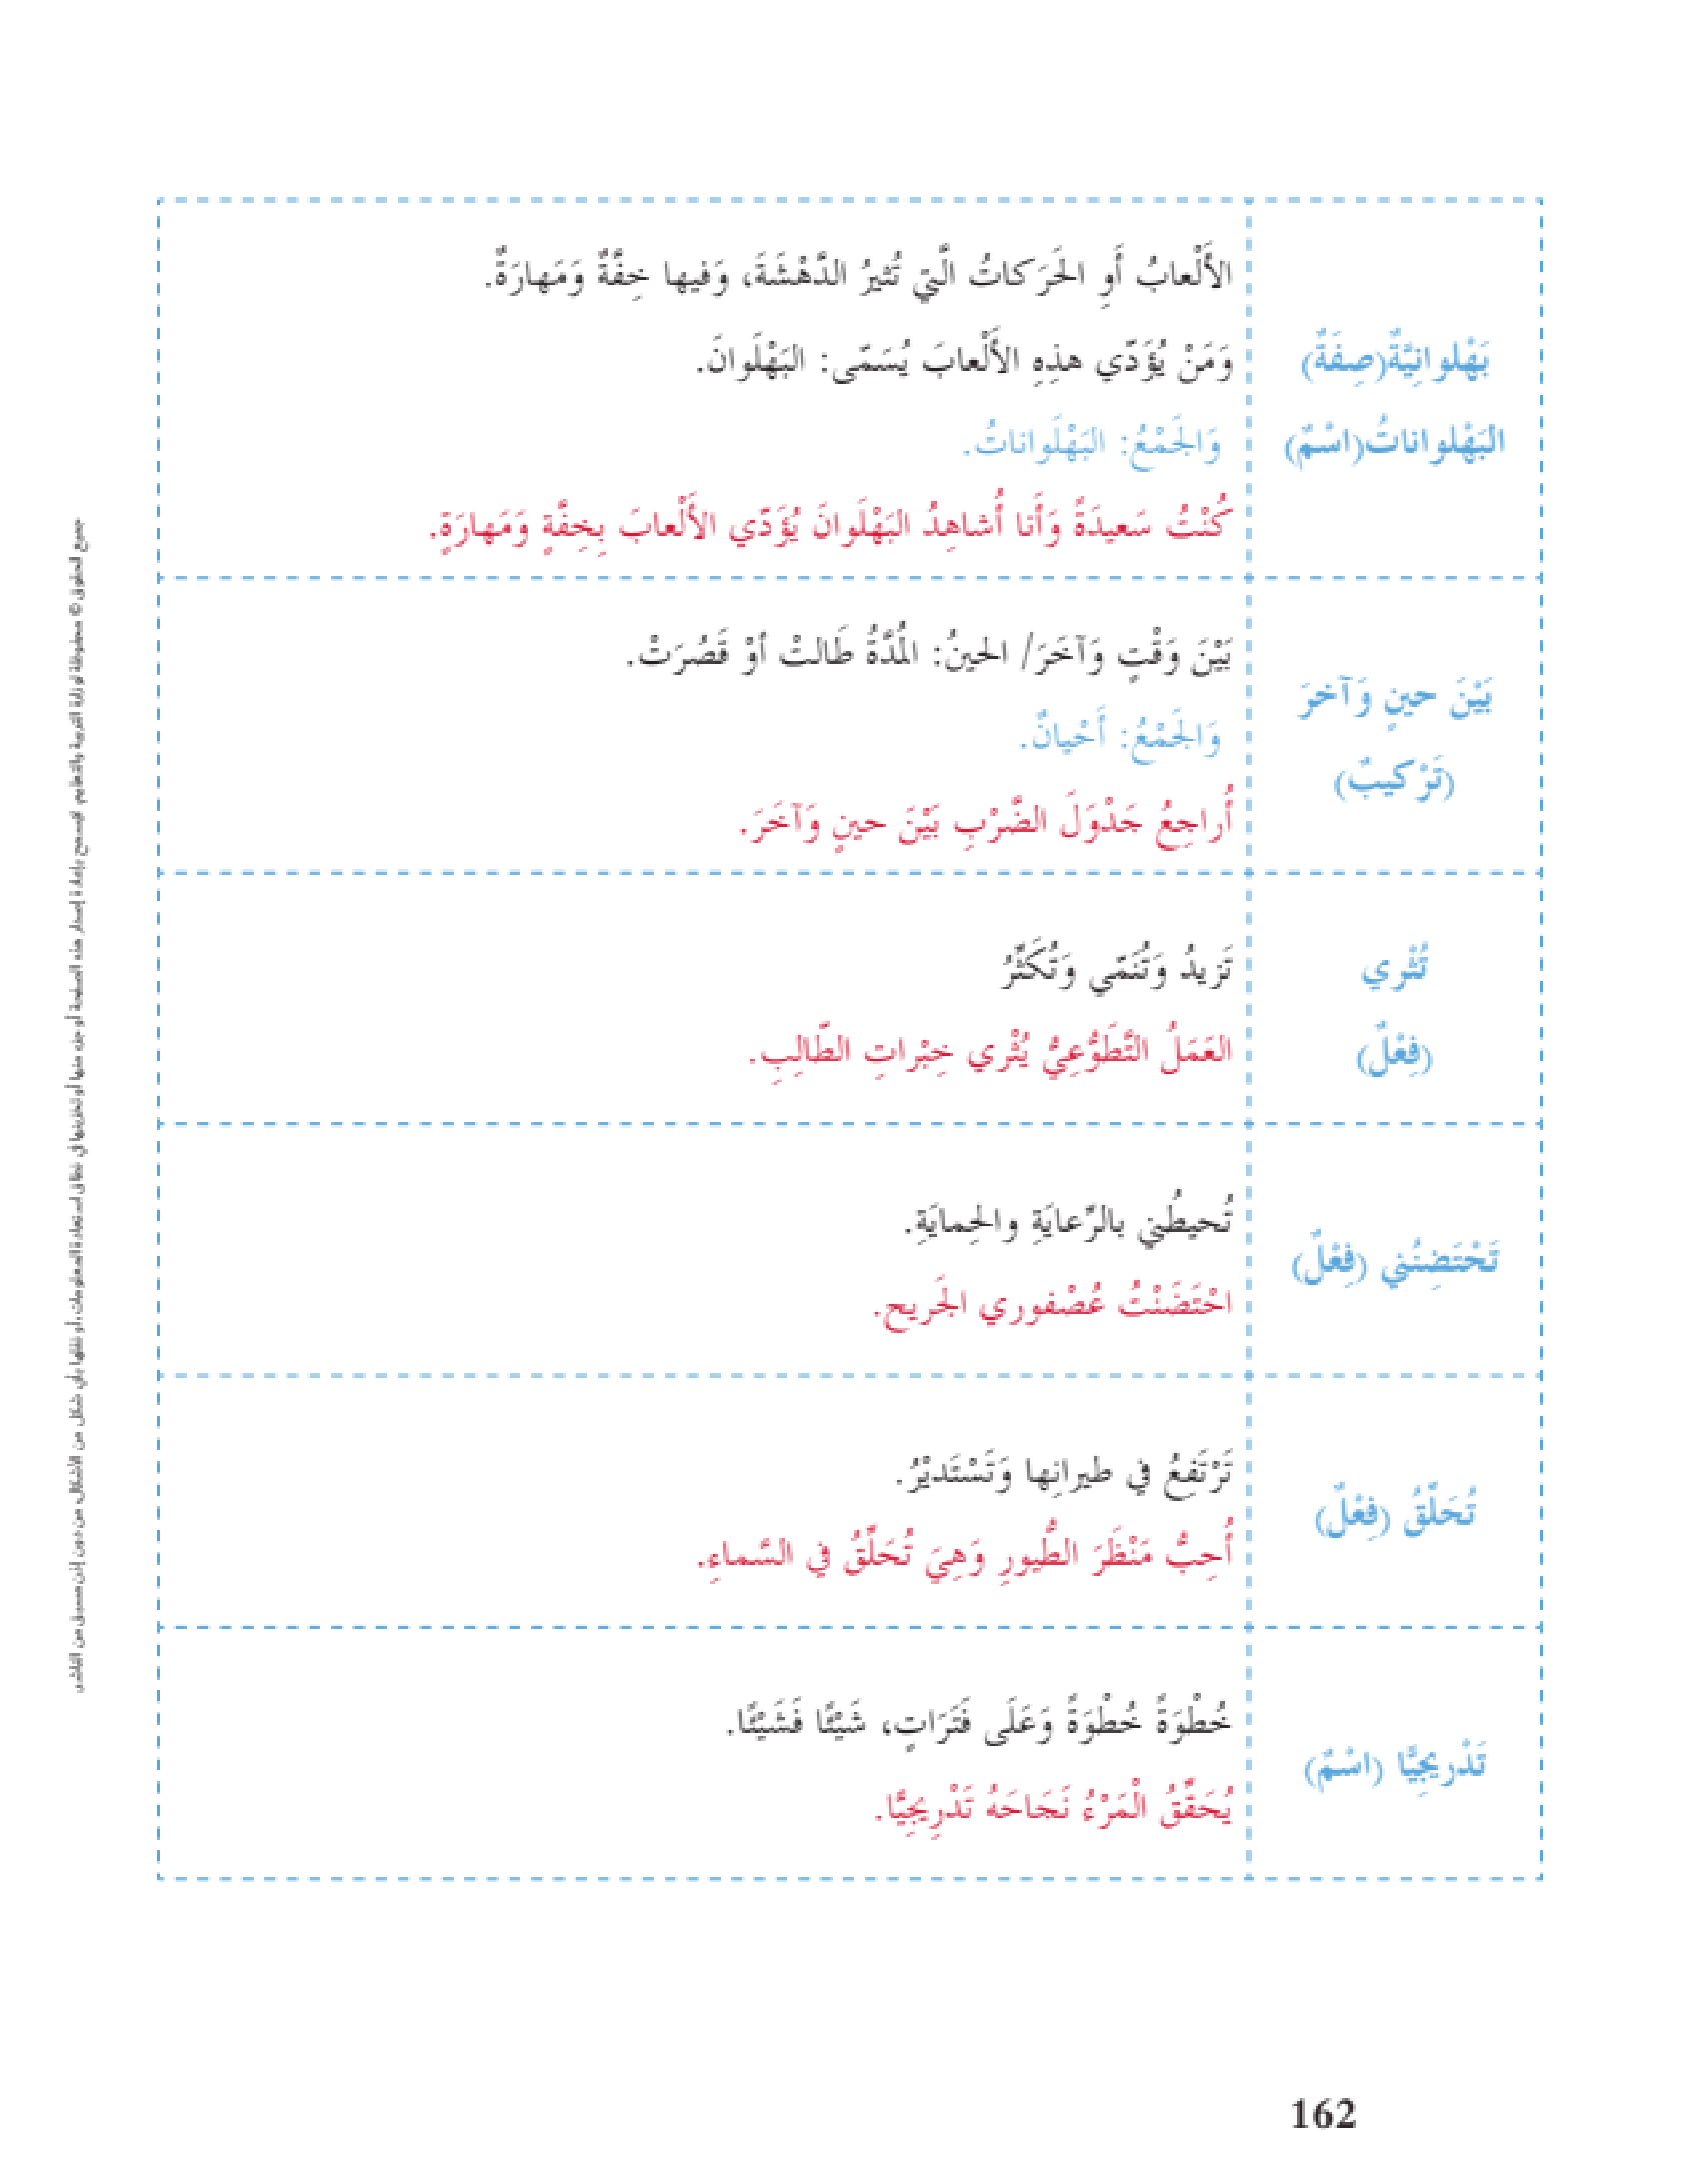 بَهْلوانِيَّةٌ(صِفَةٌ)
البَهْلواناتُ(اسْمٌ)
الأَلْعابُ أَوِ الحَرَكاتُ الَّتي تُثيرُ الدَّهْشَةَ، وَفيها خِفَّةٌ وَمَهارَةٌ.
وَمَنْ يُؤَدّي هذِهِ الأَلْعابَ يُسَمّى: البَهْلَوانَ.
وَالجَمْعُ: البَهْلَواناتُ.
كُنْتُ سَعيدَةً وَأَنا أُشاهِدُ البَهْلَوانَ يُؤَدّي الأَلْعابَ بِخِفَّةٍ وَمَهارَةٍ.
بَيْنَ حينٍ وَآخرَ
(تَرْكيبٌ)
بَيْنَ وَقْتٍ وَآخَرَ/ الحينُ: المُدَّةُ طَالتْ أوْ قَصُرَتْ.
وَالجَمْعُ: أَحْيانٌ.
أُراجِعُ جَدْوَلَ الضَّرْبِ بَيْنَ حينٍ وَآخَرَ.
تُثْري
(فِعْلٌ)
تَزيدُ وَتُنَمّي وَتُكَثِّرُ
العَمَلُ التَّطَوُّعِيُّ يُثْري خِبْراتِ الطَّالِبِ.
تَحْتَضِنُني (فِعْلٌ)
تُحيطُني بالرِّعايَةِ والحِمايَةِ.
احْتَضَنْتُ عُصْفوري الجَريح.
تُحَلِّقُ (فِعْلٌ)
تَرْتَفِعُ في طيرانِها وَتَسْتَديْرُ.
أُحِبُّ مَنْظَرَ الطُّيورِ وَهِيَ تُحَلِّقُ في السَّماءِ.
تَدْريجِيًّا (اسْمٌ)
خُطْوَةً خُطْوَةً وَعَلَى فَتَرَاتٍ، شَيْئًا فَشَيْئًا.
يُحَقِّقُ الْمَرْءُ نَجَاحَهُ تَدْرِيجِيًّا.
جميع الحقوق © محفوظة لوزارة التربية والتعليم. لايسمح بإعادة إصدار هذه الصفحة أو جزء منها أو تخزينها في نطاق استعادة المعلومات، أو نقلها بأي شكل من الأشكال، من دون إذن مسبق من الناشر
162